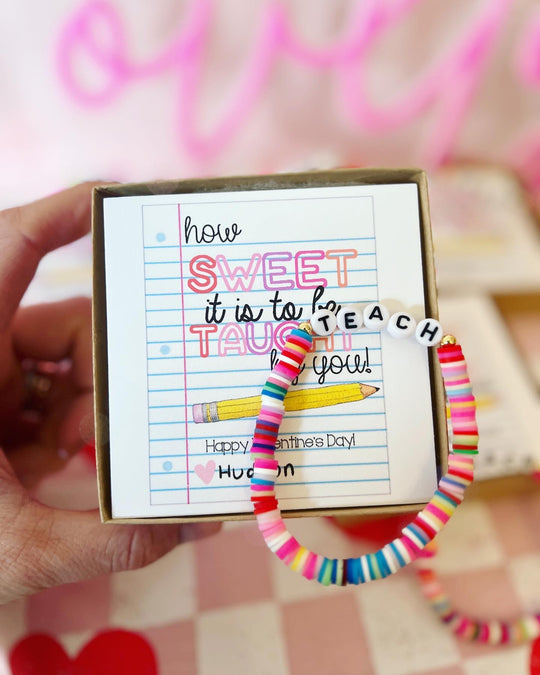 how
SWEET
it is to be
TEACH
TAUGHT
by you!
Happy Valentine's Day!
Hudson